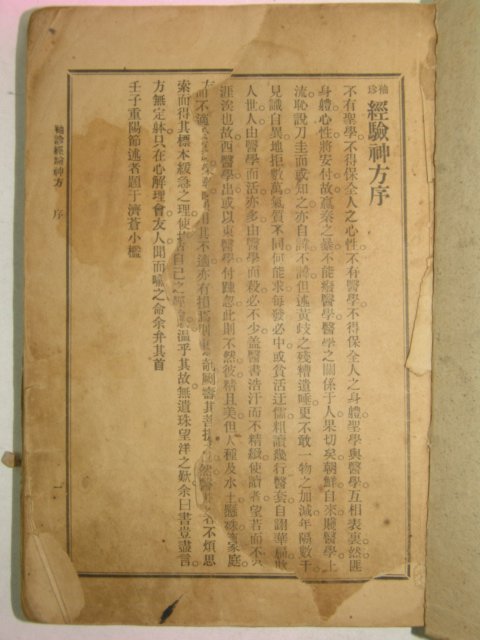 袖珍 經驗神方序
不有聖學不得保全人之心性不有醫學不得保全人之身體聖學與醫學互相表裏然匪
身體心性將安付故嬴秦之暴不能廢醫學醫學之關係于人果切矣朝鮮自來賤醫學士
流恥說刀圭而或知之亦自諱不講但述黃歧之殘糟遺唾更不敢一物之加減年隔數千
見識自異地拒數萬氣質不同何能求每發必中或貧活迂儒粗讀幾行醫套自謂華扁欺
人世人由醫學而活亦多由醫學而殺必不少盖醫書浩汗而不精緻使讀者望若而不
涯涘也故西醫學出或以東醫學付踵忽此則不然彼精且美但人種及水土懸殊家庭
而不適 其不適亦有損 然 者不煩思
索而得其標本緩急之理使 自己之 溫乎其故無遺珠望洋之歎余曰書豈盡言
方無定訣只在心解理會友人聞而 之命余弁其首
壬子重陽節述者題于濟蒼小檻
袖珍經驗神方 序 一